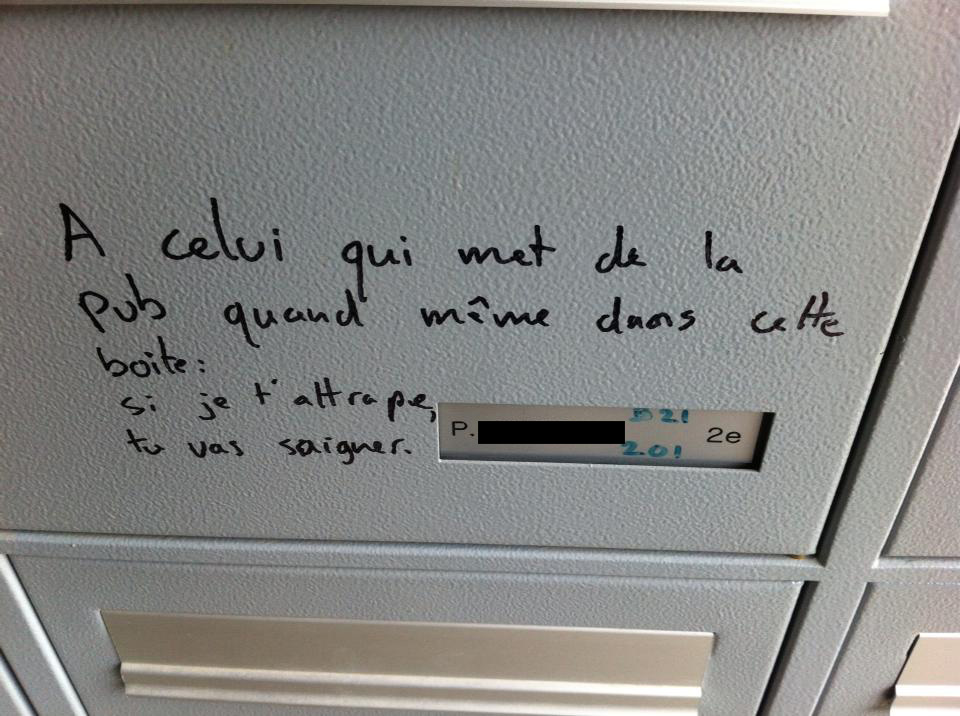 A celui qui met de la
pub quand même dans cette
boite:
si je t'attrape,
tu vas saigner.
B21
P. 2e
2.01